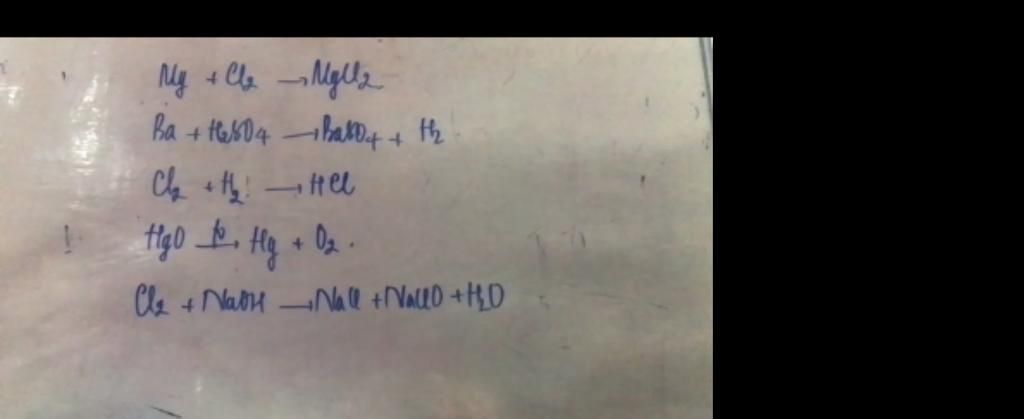 Mg + Cl₂ → MgCl₂
Ba + H₂SO₄ → BaSO₄ + H₂
Cl₂ + H₂ → HCl
HgO —t°→ Hg + O₂.
Cl₂ + NaOH → NaCl + NaClO + H₂O